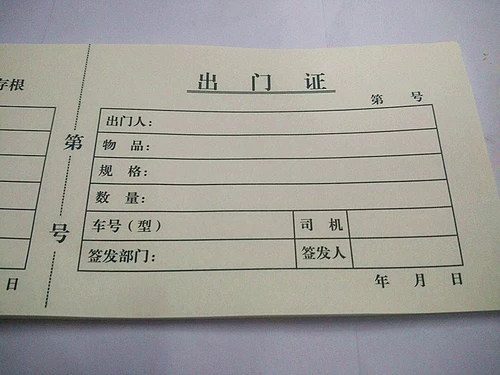 存根
出门证
第 号
出门人：
物 品：
规 格：
数 量：
车号（型） 司 机
签发部门： 签发人
年 月 日
第
号
日